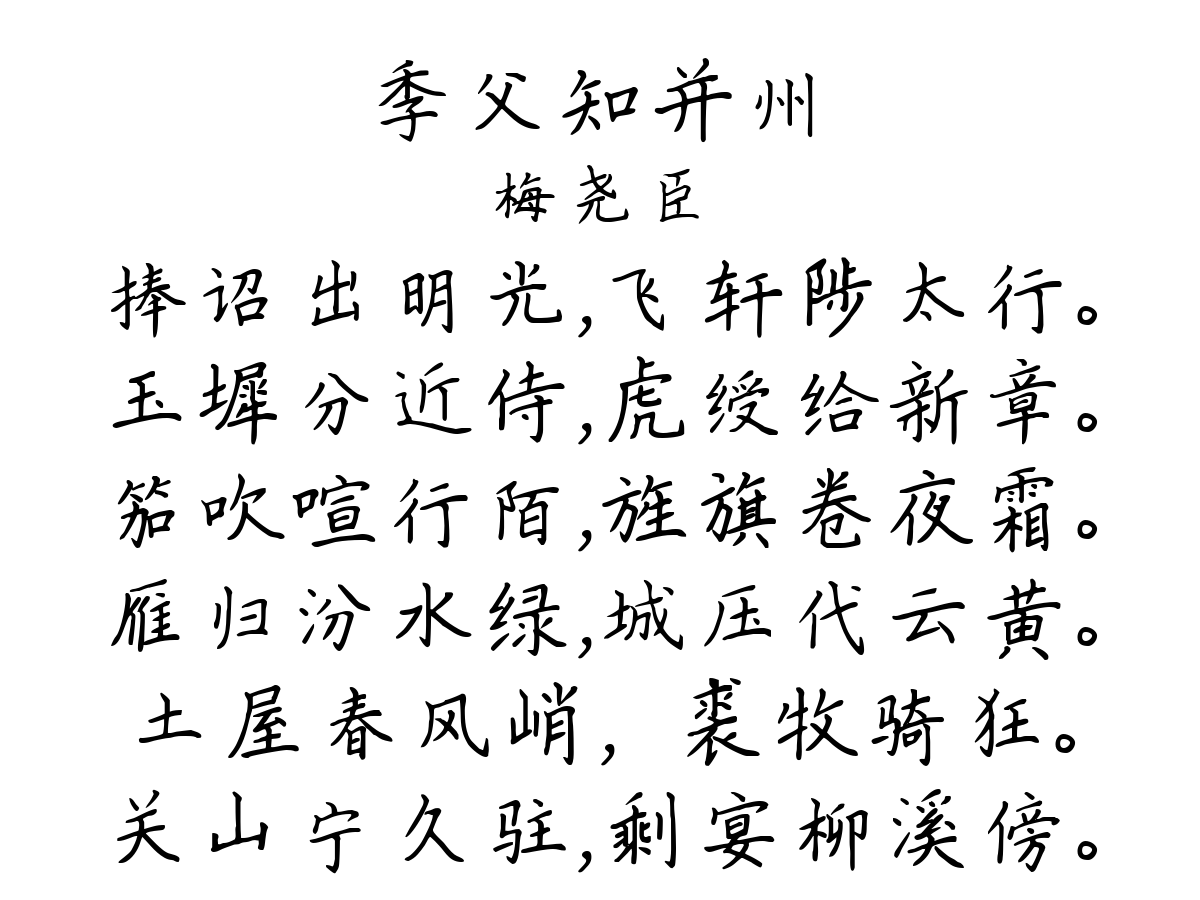 季父知并州
梅尧臣
捧诏出明光,飞轩陟太行。
玉墀分近侍,虎绶给新章。
笳吹喧行陌,旌旗卷夜霜。
雁归汾水绿,城压代云黄。
土屋春风峭，裘牧骑狂。
关山宁久驻,剩宴柳溪傍。